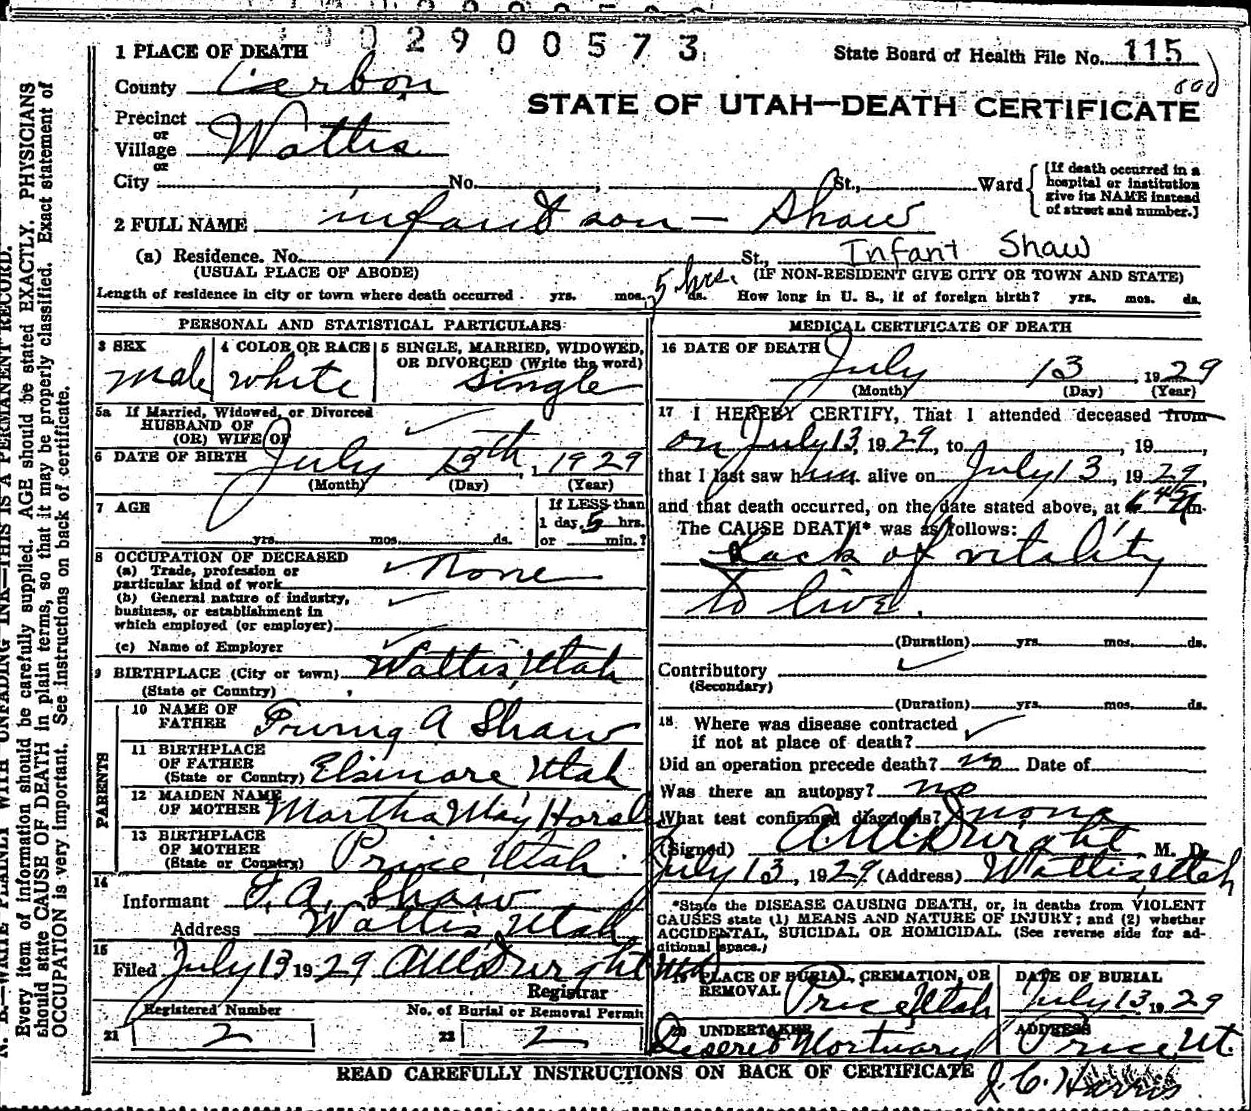 2900573
1 PLACE OF DEATH
State Board of Health File No. 115
County Carbon
STATE OF UTAH—DEATH CERTIFICATE
Precinct
or
Village Wattis
or
City No. St., Ward
[If death occurred in a hospital or institution give its NAME instead of street and number.]
2 FULL NAME infant son — Shaw
(a) Residence. No. St., Infant Shaw
(USUAL PLACE OF ABODE) (IF NON-RESIDENT GIVE CITY OR TOWN AND STATE)
Length of residence in city or town where death occurred yrs. mos. 5 hrs. ds. How long in U. S., if of foreign birth? yrs. mos. ds.
PERSONAL AND STATISTICAL PARTICULARS
3 SEX
Male
4 COLOR OR RACE
white
5 SINGLE, MARRIED, WIDOWED, OR DIVORCED (Write the word)
single
5a If Married, Widowed, or Divorced
HUSBAND OF
(OR) WIFE OF
6 DATE OF BIRTH July 13th, 1929
(Month) (Day) (Year)
7 AGE
yrs. mos. ds.
If LESS than
1 day, 5 hrs.
or min.?
8 OCCUPATION OF DECEASED
(a) Trade, profession or
particular kind of work None
(b) General nature of industry,
business, or establishment in
which employed (or employer)
(c) Name of Employer
9 BIRTHPLACE (City or town) Wattis, Utah
(State or Country)
PARENTS
10 NAME OF
FATHER A Shaw
11 BIRTHPLACE
OF FATHER
(State or Country) Elsinore Utah
12 MAIDEN NAME
OF MOTHER Martha May Horsley
13 BIRTHPLACE
OF MOTHER
(State or Country) Price, Utah
14
Informant A. Shaw
Address Wattis, Utah
15
Filed July 13 1929
Registrar
Registered Number
21 2
No. of Burial or Removal Permit
22 2
MEDICAL CERTIFICATE OF DEATH
16 DATE OF DEATH
July 13, 1929
(Month) (Day) (Year)
17 I HEREBY CERTIFY, That I attended deceased from
on July 13, 1929, to , 19 ,
that I last saw him alive on July 13, 1929,
and that death occurred, on the date stated above, at 6 45 m.
The CAUSE DEATH* was as follows:
Lack of vitality
to live.
(Duration) yrs. mos. ds.
Contributory
(Secondary)
(Duration) yrs. mos. ds.
18 Where was disease contracted
if not at place of death?
Did an operation precede death? no Date of
Was there an autopsy? no
What test confirmed diagnosis? none
(Signed) M. D.
July 13, 1929 (Address) Wattis, Utah
*State the DISEASE CAUSING DEATH, or, in deaths from VIOLENT
CAUSES state (1) MEANS AND NATURE OF INJURY; and (2) whether
ACCIDENTAL, SUICIDAL OR HOMICIDAL. (See reverse side for ad-
ditional space.)
19 PLACE OF BURIAL, CREMATION, OR
REMOVAL Price, Utah
DATE OF BURIAL
July 13, 1929
20 UNDERTAKER
Deseret Mortuary
ADDRESS
Price, Ut.
READ CAREFULLY INSTRUCTIONS ON BACK OF CERTIFICATE
J. C. Harris
N. B.—WRITE PLAINLY WITH UNFADING INK—THIS IS A PERMANENT RECORD.
Every item of information should be carefully supplied. AGE should be stated EXACTLY. PHYSICIANS
should state CAUSE OF DEATH in plain terms, so that it may be properly classified. Exact statement of
OCCUPATION is very important. See instructions on back of certificate.